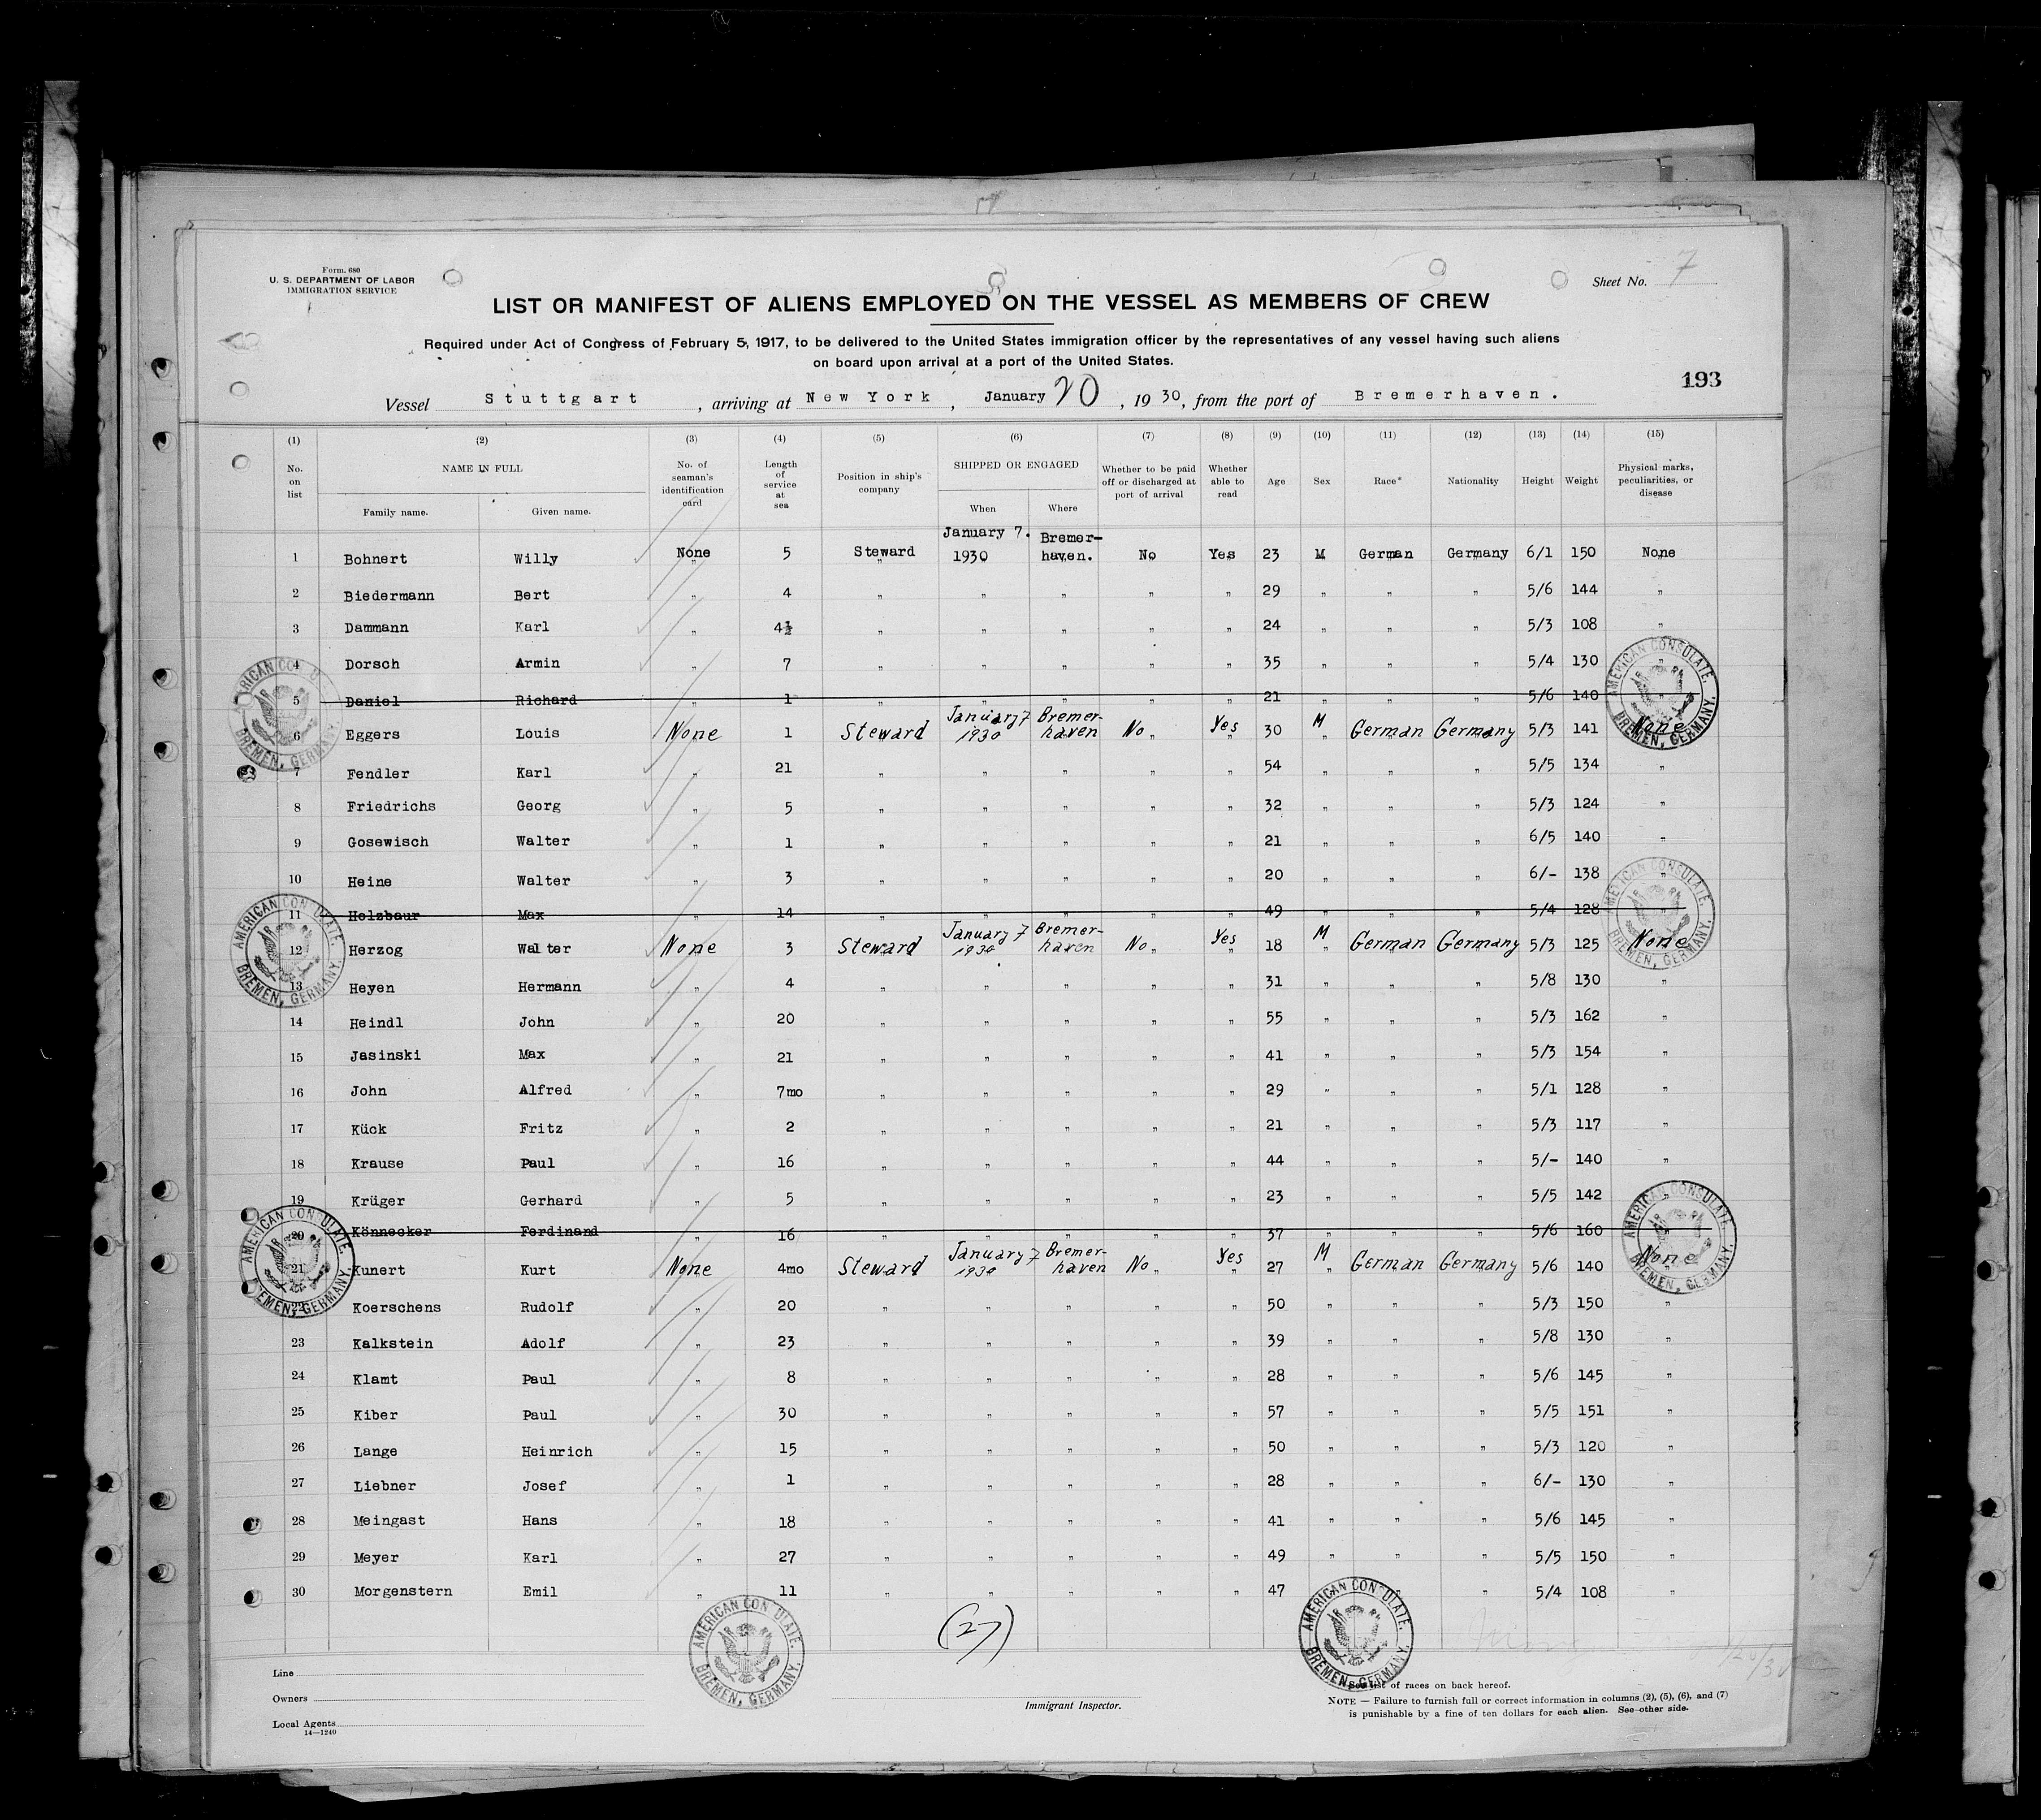 Form. 680
U. S. DEPARTMENT OF LABOR
IMMIGRATION SERVICE
Sheet No. 7
LIST OR MANIFEST OF ALIENS EMPLOYED ON THE VESSEL AS MEMBERS OF CREW
Required under Act of Congress of February 5, 1917, to be delivered to the United States immigration officer by the representatives of any vessel having such aliens
on board upon arrival at a port of the United States.
193
Vessel Stuttgart, arriving at New York, January 20, 1930, from the port of Bremerhaven.
(1) (2) (3) (4) (5) (6) (7) (8) (9) (10) (11) (12) (13) (14) (15)
No. on list
NAME IN FULL
Family name. Given name.
No. of seaman's identification card
Length of service at sea
Position in ship's company
SHIPPED OR ENGAGED
When Where
Whether to be paid off or discharged at port of arrival
Whether able to read
Age Sex Race* Nationality Height Weight
Physical marks, peculiarities, or disease
1 Bohnert Willy None 5 Steward January 7. 1930 Bremer-haven. No Yes 23 M German Germany 6/1 150 None
2 Biedermann Bert " 4 " " " " " 29 " " " 5/6 144 "
3 Dammann Karl " 4½ " " " " " 24 " " " 5/3 108 "
4 Dorsch Armin " 7 " " " " " 35 " " " 5/4 130 "
5 Daniel Richard " 1 " " " " " 21 " " " 5/6 140 "
6 Eggers Louis None 1 Steward January 7 1930 Bremer-haven No Yes 30 M German Germany 5/3 141 None
7 Fendler Karl " 21 " " " " " 54 " " " 5/5 134 "
8 Friedrichs Georg " 5 " " " " " 32 " " " 5/3 124 "
9 Gosewisch Walter " 1 " " " " " 21 " " " 6/5 140 "
10 Heine Walter " 3 " " " " " 20 " " " 6/- 138 "
11 Holzbaur Max " 14 " " " " " 49 " " " 5/4 128 "
12 Herzog Walter None 3 Steward January 7 1930 Bremer-haven No Yes 18 M German Germany 5/3 125 None
13 Heyen Hermann " 4 " " " " " 31 " " " 5/8 130 "
14 Heindl John " 20 " " " " " 55 " " " 5/3 162 "
15 Jasinski Max " 21 " " " " " 41 " " " 5/3 154 "
16 John Alfred " 7mo " " " " " 29 " " " 5/1 128 "
17 Kück Fritz " 2 " " " " " 21 " " " 5/3 117 "
18 Krause Paul " 16 " " " " " 44 " " " 5/- 140 "
19 Krüger Gerhard " 5 " " " " " 23 " " " 5/5 142 "
20 Könnecker Ferdinand " 16 " " " " " 37 " " " 5/6 160
21 Kunert Kurt None 4mo Steward January 7 1930 Bremer-haven No Yes 27 M German Germany 5/6 140 None
22 Koerschens Rudolf " 20 " " " " " 50 " " " 5/3 150 "
23 Kalkstein Adolf " 23 " " " " " 39 " " " 5/8 130 "
24 Klamt Paul " 8 " " " " " 28 " " " 5/6 145 "
25 Kiber Paul " 30 " " " " " 57 " " " 5/5 151 "
26 Lange Heinrich " 15 " " " " " 50 " " " 5/3 120 "
27 Liebner Josef " 1 " " " " " 28 " " " 6/- 130 "
28 Meingast Hans " 18 " " " " " 41 " " " 5/6 145 "
29 Meyer Karl " 27 " " " " " 49 " " " 5/5 150 "
30 Morgenstern Emil " 11 " " " " " 47 " " " 5/4 108 "
AMERICAN CONSULATE. BREMEN, GERMANY.
AMERICAN CONSULATE. BREMEN, GERMANY.
AMERICAN CONSULATE. BREMEN, GERMANY.
AMERICAN CONSULATE. BREMEN, GERMANY.
AMERICAN CONSULATE. BREMEN, GERMANY.
AMERICAN CONSULATE. BREMEN, GERMANY.
AMERICAN CONSULATE. BREMEN, GERMANY.
AMERICAN CONSULATE. BREMEN, GERMANY.
(27)
Line
Owners
Local Agents
14—1240
Immigrant Inspector.
*See list of races on back hereof.
NOTE — Failure to furnish full or correct information in columns (2), (5), (6), and (7)
is punishable by a fine of ten dollars for each alien. See other side.